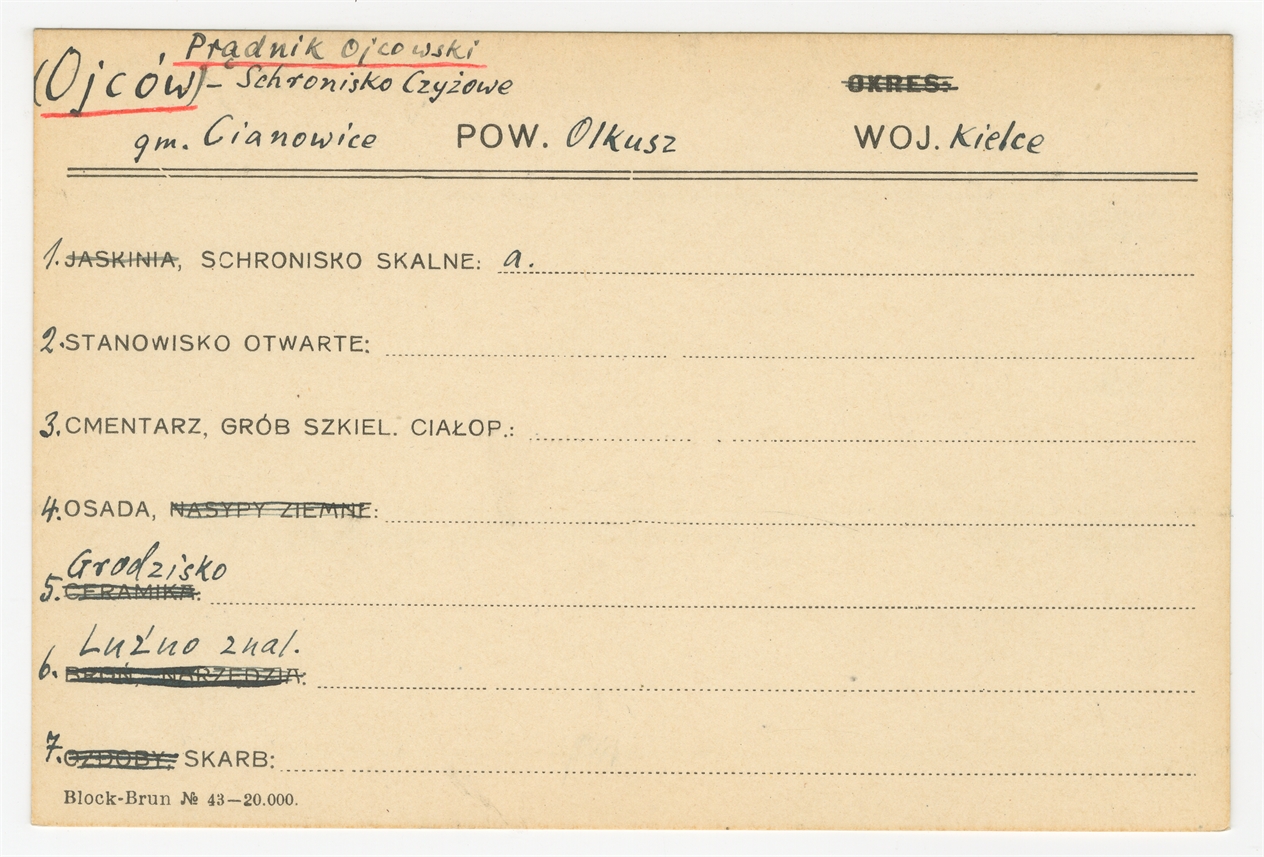 Prądnik Ojcowski
(Ojców) – Schronisko Czyżowe
OKRES:
gm. Cianowice POW. Olkusz WOJ. Kielce
1. JASKINIA, SCHRONISKO SKALNE: a.
2. STANOWISKO OTWARTE:
3. CMENTARZ, GRÓB SZKIEL. CIAŁOP.:
4. OSADA, NASYPY ZIEMNE:
Grodzisko
5. CERAMIKA:
Luźno znal.
6. BROŃ, NARZĘDZIA:
7. OZDOBY, SKARB:
Block-Brun № 43—20.000.